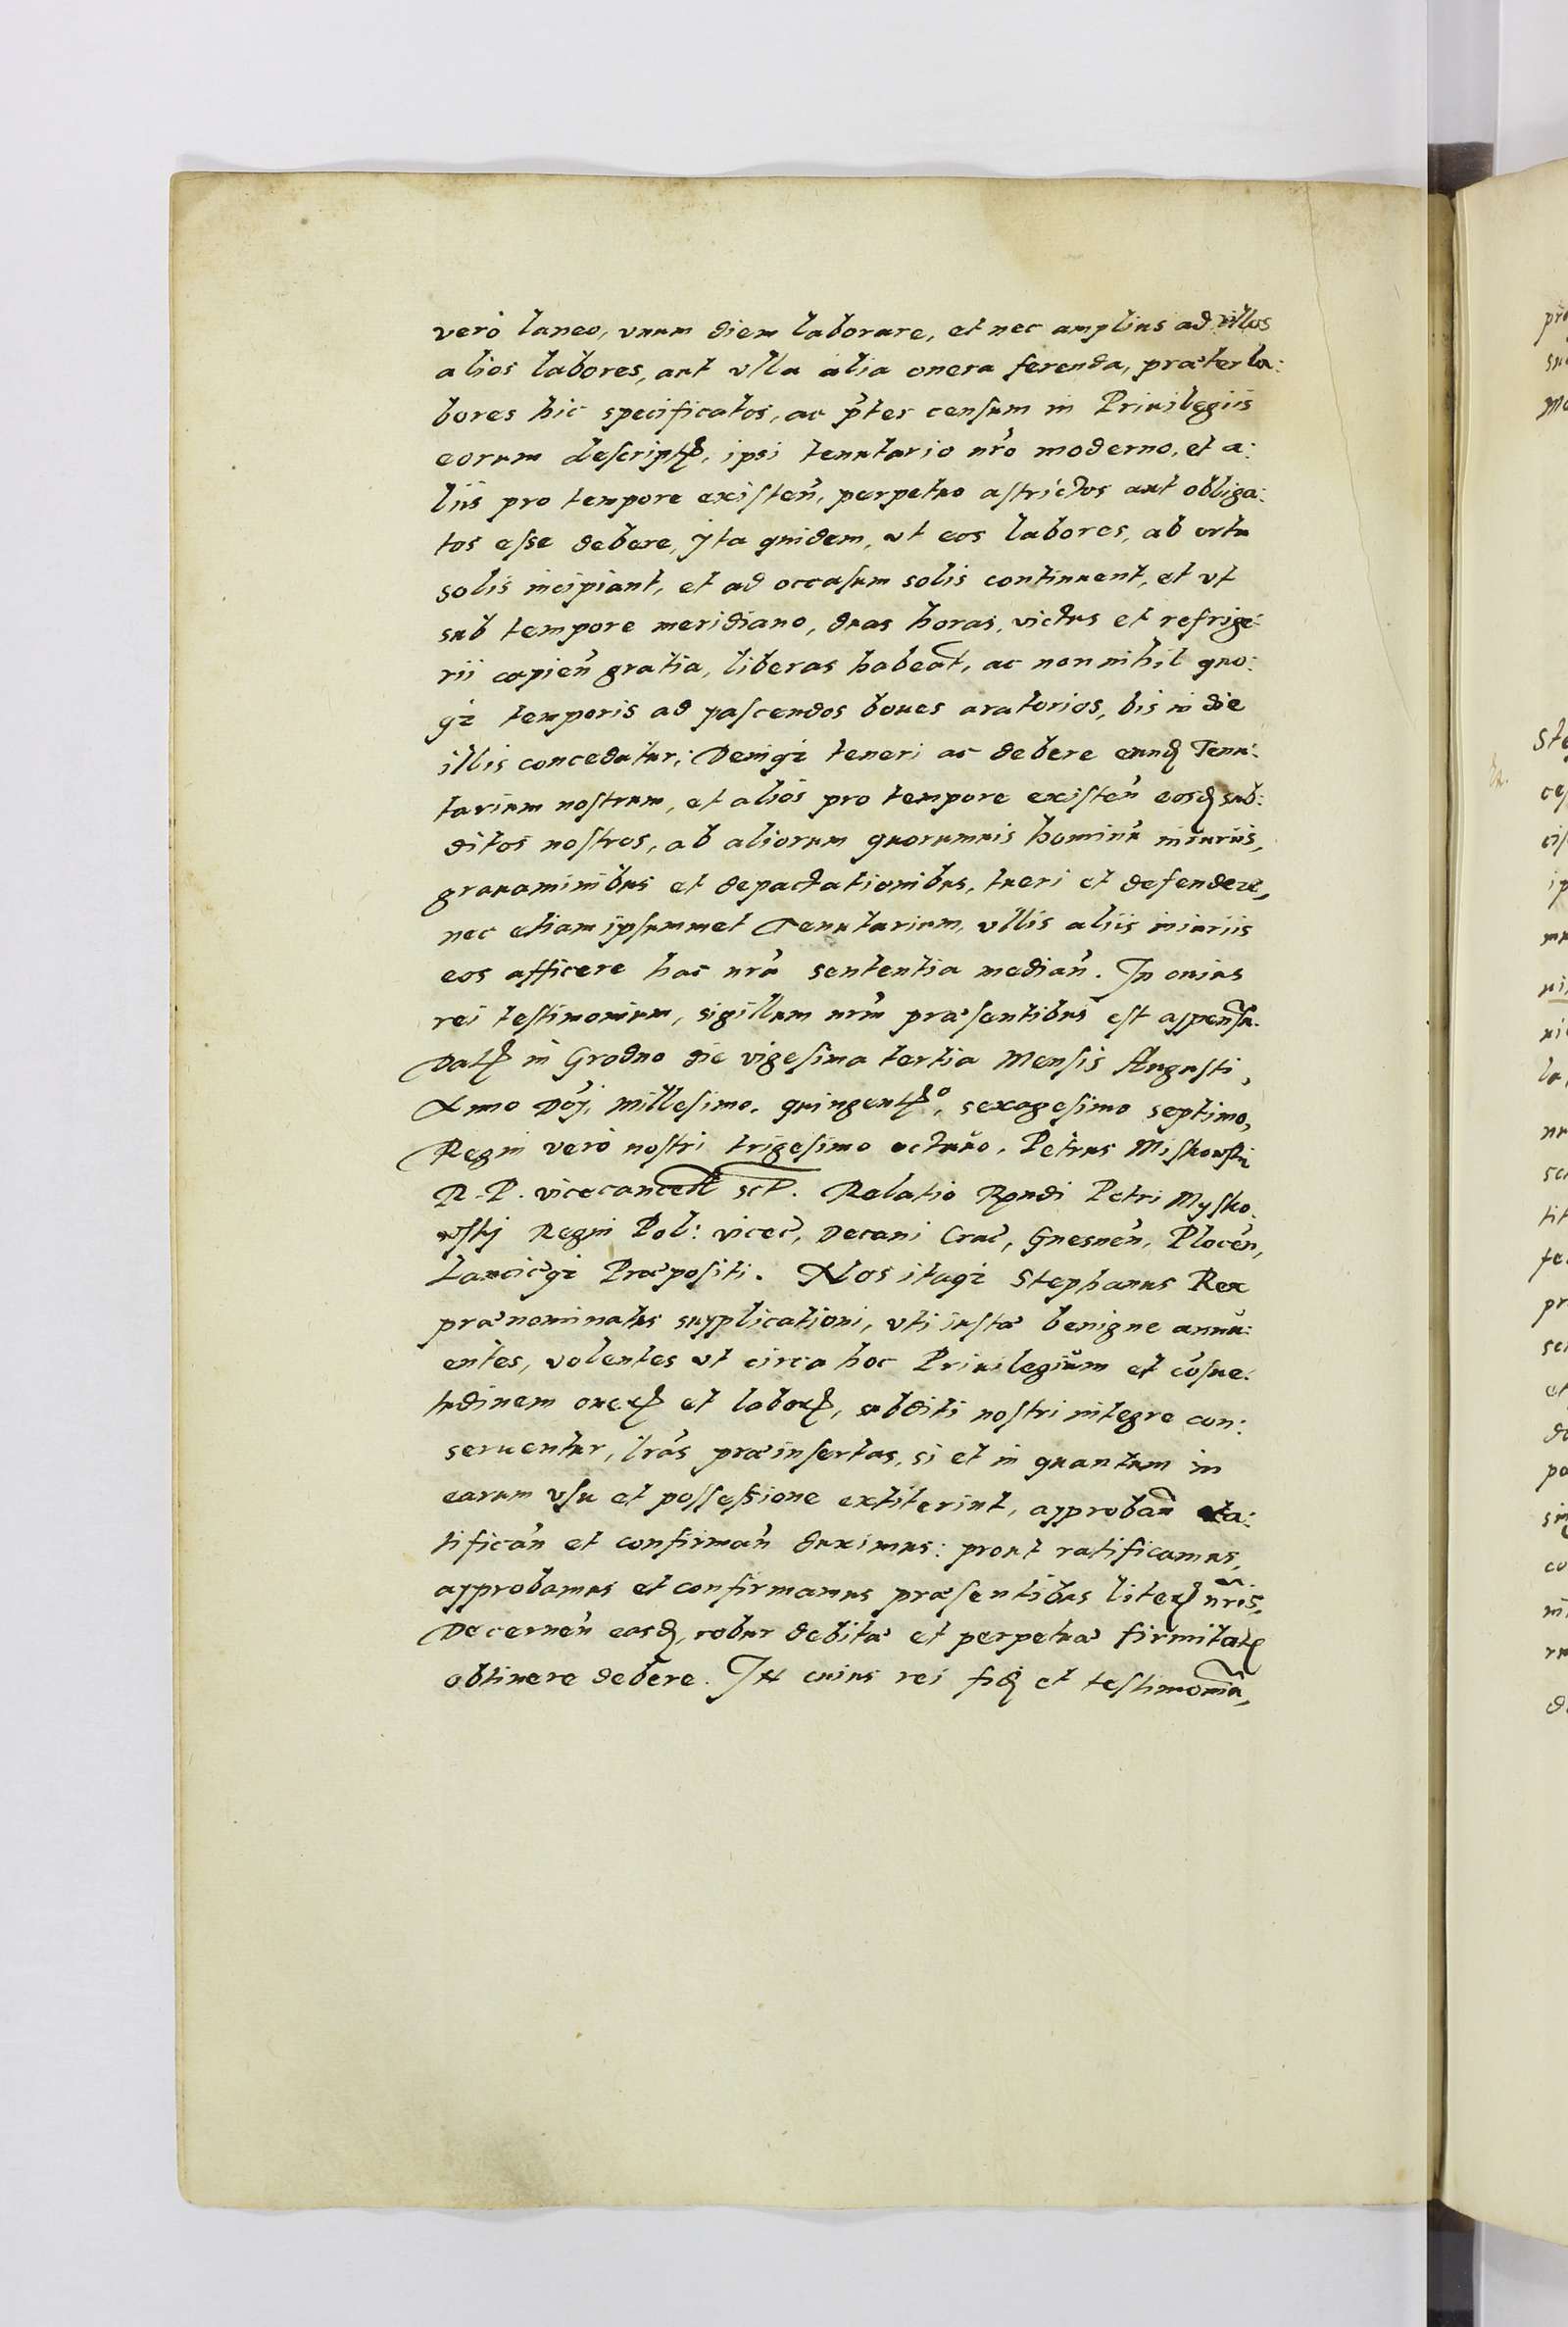 verò laneo, vnum diem laborare, et nec amplius ad vllos
alios labores, aut vlla alia onera ferenda, præter la:
bores hic specificatos, ac p̃ter censum in Priuilegiis
eorum descriptꝭ, ipsi tenutario nr̃o moderno, et a:
liis pro tempore existeñ, perpetuo astrictos aut obliga:
tos esse debere, yta quidem, vt eos labores, ab ortu
solis incipiant, et ad occasum solis continuent, et vt
sub tempore meridiano, duas horas, victus et refrige:
rii capieñ gratia, liberas habeãt, ac non nihil quo:
qꝫ temporis ad pascendos boues aratorios, bis in die
illis concedatur; Deniqꝫ teneri ac debere eundꝭ Tenu:
tarium nostrum, et alios pro tempore existeñ eosdꝭ sub:
ditos nostros, ab aliorum quorumuis hominũ iniuriis,
grauaminibus et depactationibus, tueri et defendere,
nec etiam ipsummet Tenutarium, vllis aliis iniuriis
eos afficere hac nrã sententia mediañ. In cuius
rei testimonium, sigillum nrũ præsentibus est appensũ.
Datꝭ in Grodno die vigesima tertia Mensis Augusti,
Anno Dõj, Millesimo, quingentꝭº, sexagesimo septimo,
Regni verò nostri trigesimo octauo. Petrus Miskowski
R. P. vicecancell̃ sct̃. Relatio Rṇdi Petri Mysko:
wskj Regni Pol: vicec̃, Decani Crac̃, Gnesneñ, Ploceñ,
Lanciciẽqꝫ Præpositi. Nos itaqꝫ Stephanus Rex
prænominatus supplicationi, vti iustæ benigne annu:
entes, volentes vt circa hoc Priuilegium et cõsue:
tudinem onerꝭ et laborꝭ, subditi nostri integre con:
seruentur, lrãs præinsertas, si et in quantum in
earum vsu et possessione extiterint, approbañ ra:
tificañ et confirmañ duximus: prout ratificamus,
approbamus et confirmamus præsentibus literꝭ nr̃is,
Decerneñ easdꝭ, robur debitæ et perpetuæ firmitatꝭ
obtinere debere. In cuius rei fidꝭ et testimoniũ,